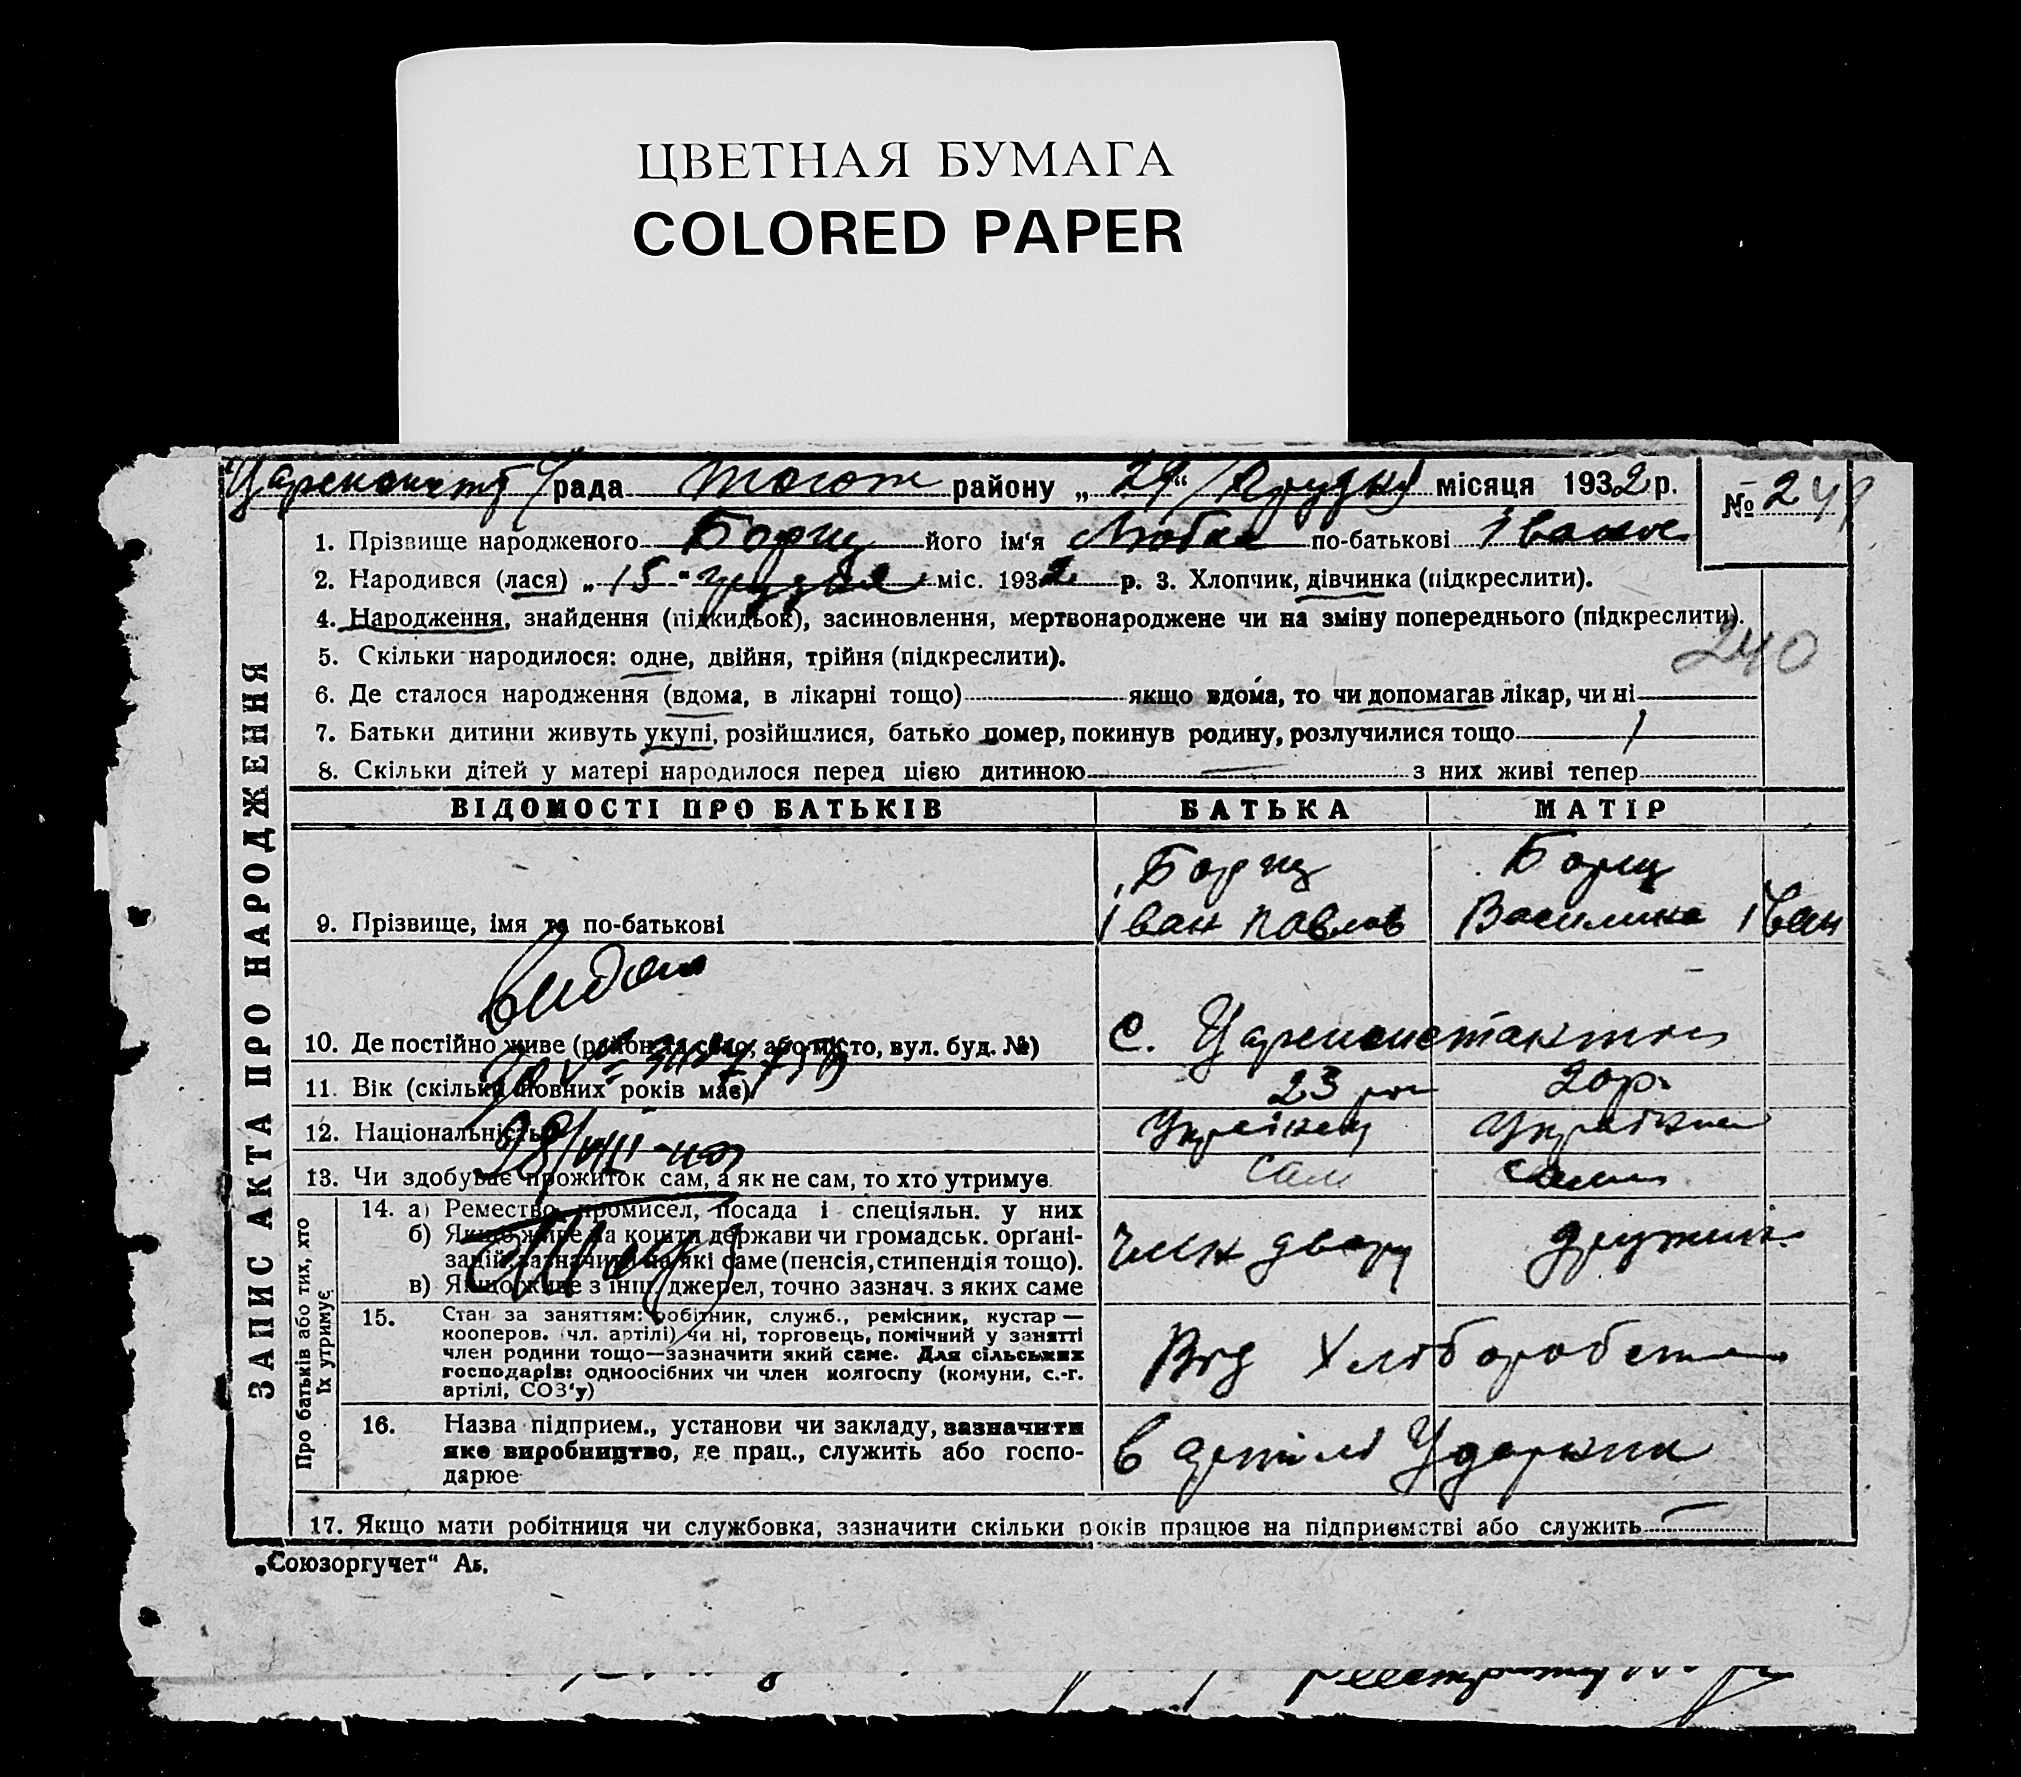 ЦВЕТНАЯ БУМАГА
COLORED PAPER
рада району „29“ Грудня місяця 1932 р. № 241
1. Прізвище народженого Борщ його ім'я Любка по-батькові Іванов
2. Народився (лася) „15“ грудня міс. 1932 р. 3. Хлопчик, дівчинка (підкреслити).
4. Народження, знайдення (підкидьок), засиновлення, мертвонароджене чи на зміну попереднього (підкреслити).
240
5. Скільки народилося: одне, двійня, трійня (підкреслити).
6. Де сталося народження (вдома, в лікарні тощо) якщо вдома, то чи допомагав лікар, чи ні
7. Батьки дитини живуть укупі, розійшлися, батько помер, покинув родину, розлучилися тощо
8. Скільки дітей у матері народилося перед цією дитиною з них живі тепер
ЗАПИС АКТА ПРО НАРОДЖЕННЯ
ВІДОМОСТІ ПРО БАТЬКІВ БАТЬКА МАТІР
Борщ Борщ
9. Прізвище, імя та по-батькові Іван Павлов Василина Іван
10. Де постійно живе (район та село, або місто, вул. буд. №) с.
11. Вік (скільки повних років має) 23 20р.
12. Національність Українец Українка
13. Чи здобуває прожиток сам, а як не сам, то хто утримує сам сама
Про батьків або тих, хто їх утримує
14. а) Ремество, промисел, посада і спеціяльн. у них
б) Якщо живе на кошти держави чи громадськ. орґані-
зацій зазначити на які саме (пенсія, стипендія тощо).
в) Якщо живе з інш. джерел, точно зазнач. з яких саме
член двору
15. Стан за заняттям: робітник, служб., ремісник, кустар—
кооперов. (чл. артілі) чи ні, торговець, помічний у занятті
член родини тощо—зазначити який саме. Для сільських
господарів: одноосібних чи член колгоспу (комуни, с.-г.
артілі, СОЗ'у)
Від Хліборобства
16. Назва підприєм., установи чи закладу, зазначити
яке виробництво, де прац., служить або госпо-
дарює
в артілі Ударник
17. Якщо мати робітниця чи службовка, зазначити скільки років працює на підприємстві або служить
„Союзоргучет“ Ав.